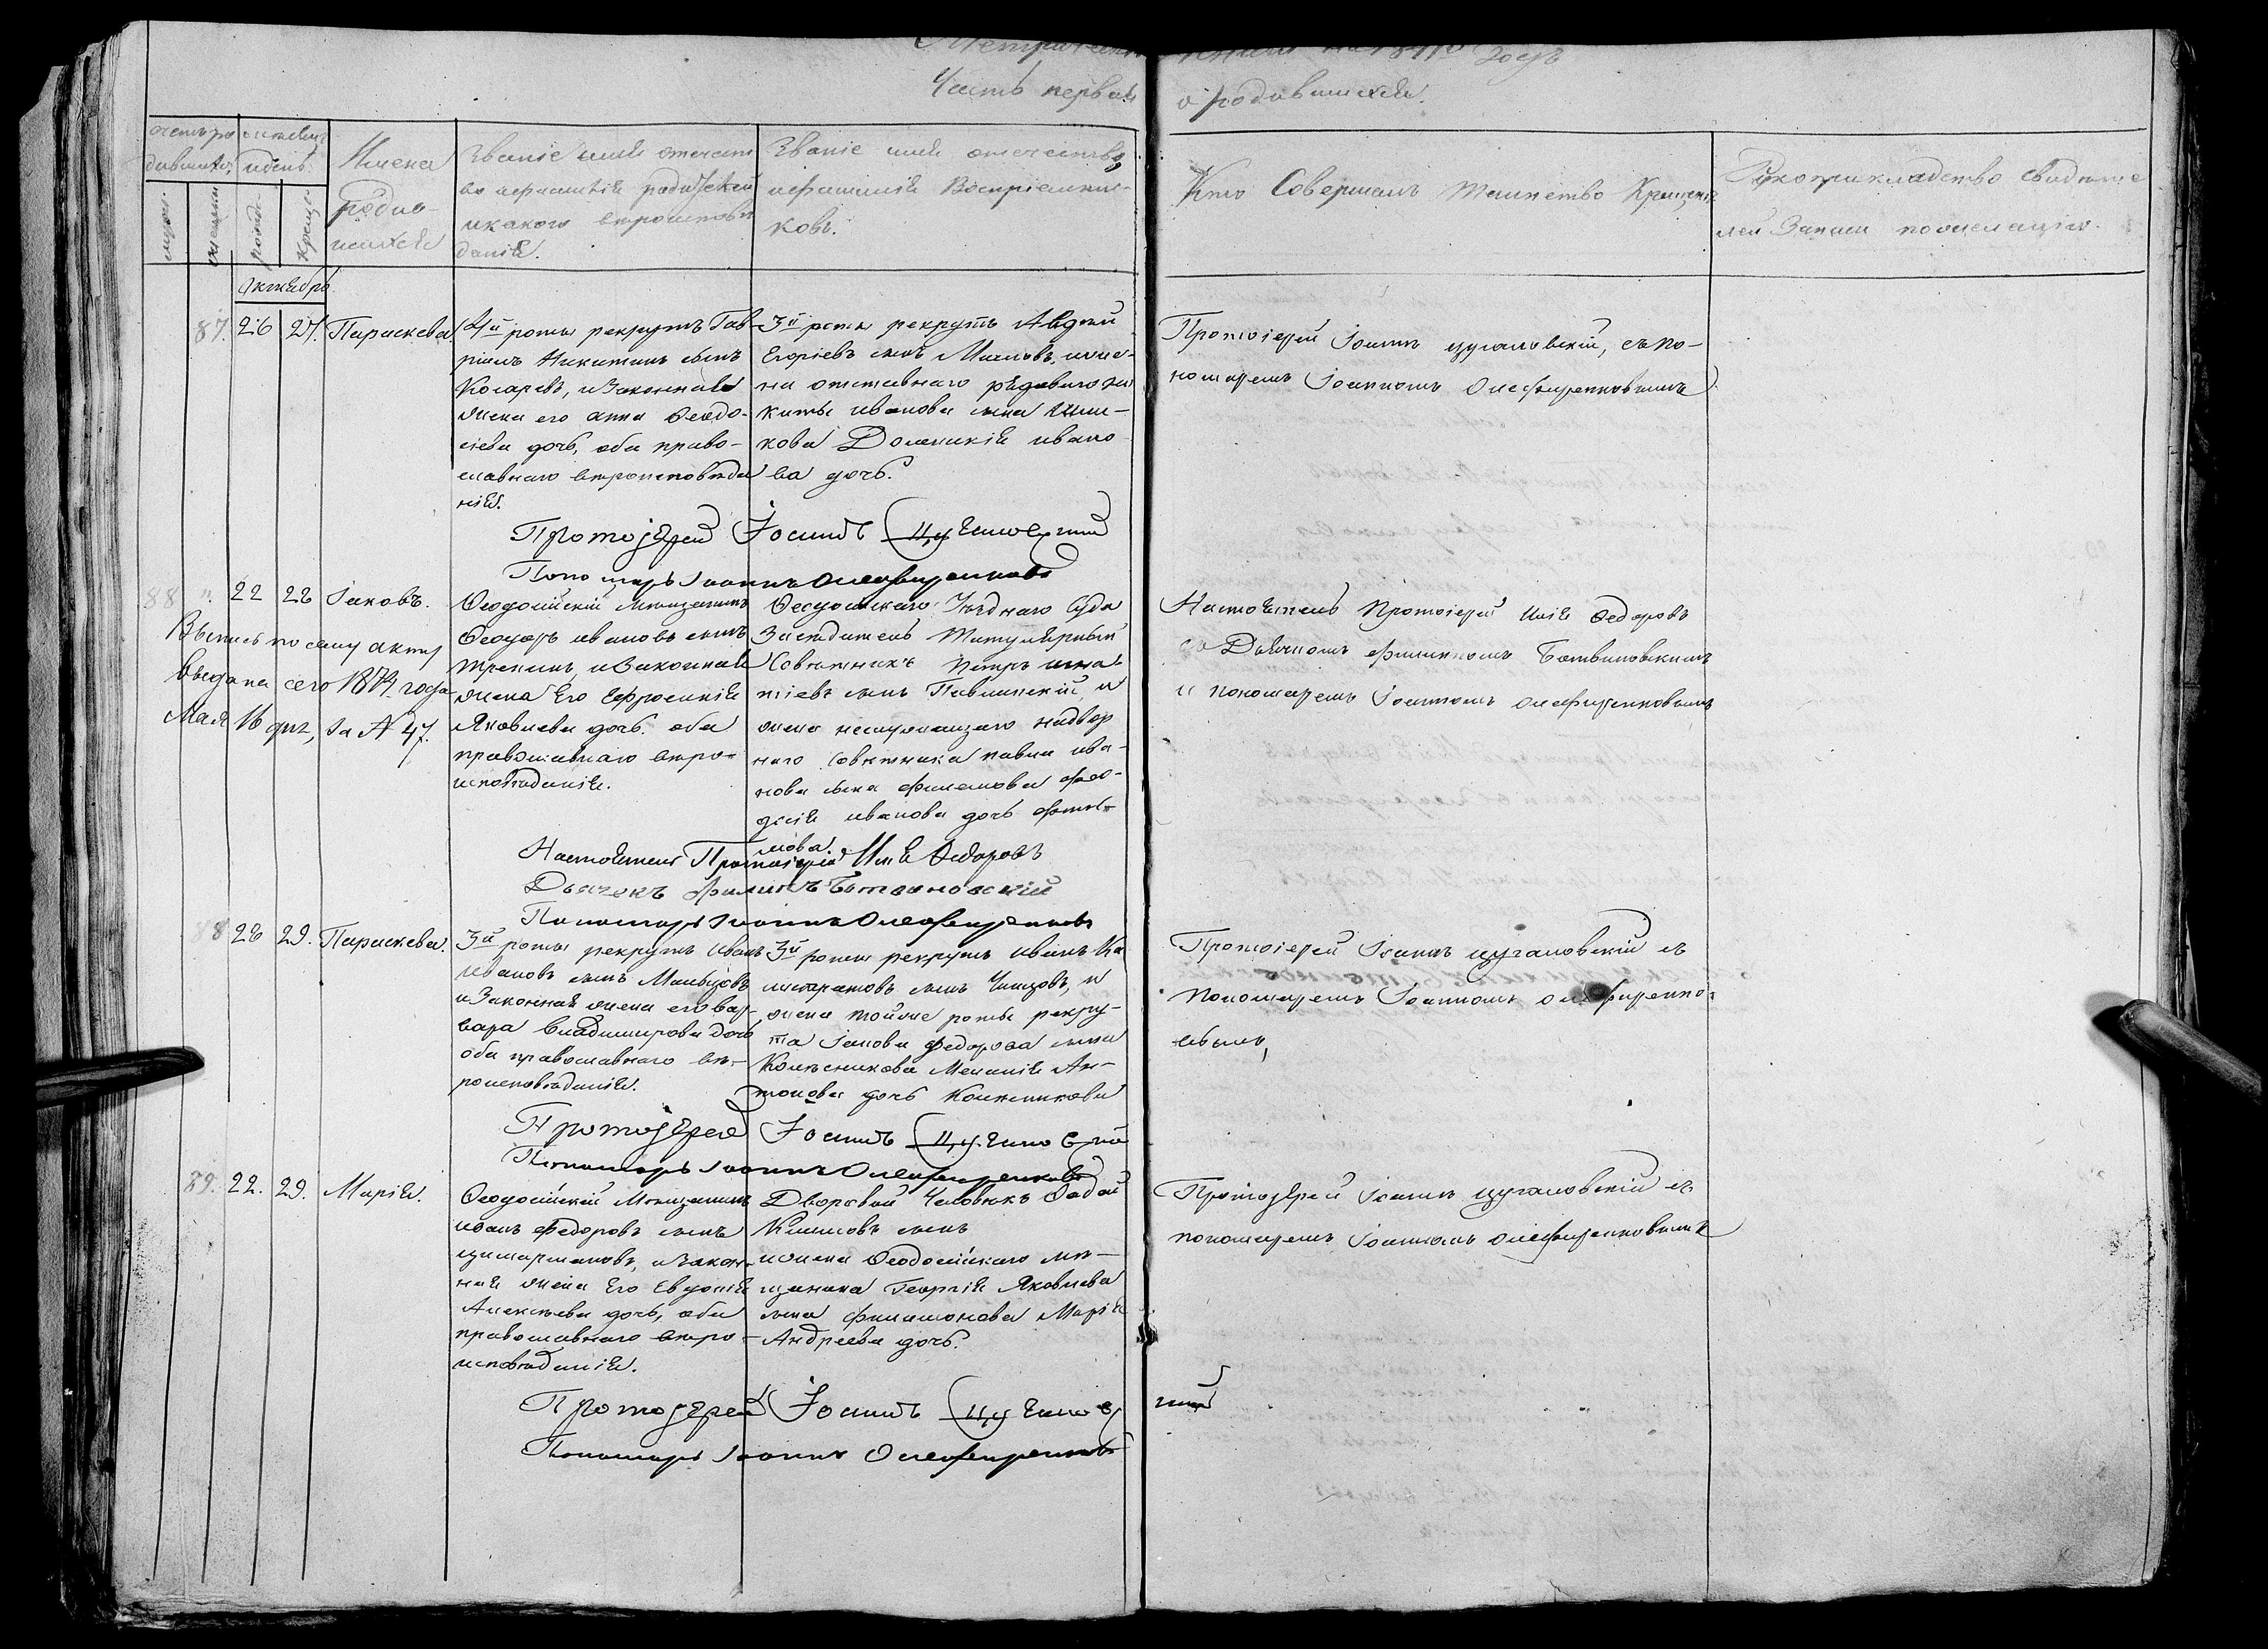 Часть первая о родившихся.
Имена
родив-
шихся
Званіе имя отечест
во и фамилія родителей
и какого вѣроисповѣ
данія.
Званіе имя отечество
и фамилія Воспріемни-
ковъ.
Кто Совершалъ таинство Крещенія
Рукоприкладство свидѣте
лей Записи по желанію.
октября
87. 26 27. Параскева
4й роты рекрутъ Гав-
ріилъ Никитинъ сынъ
Косаревъ, и Законная
жена его анна Ѳеодо-
сіева дочь, оба право-
славнаго вѣроисповѣда
нія.
3й роты рекрутъ Авдѣй
Егоріевъ сынъ и же-
на отставнаго рядоваго Ни
киты иванова сына
кова Домникія ивано
ва дочь.
Протоіерей Іоаннъ цугаловскій, съ по-
номаремъ Іоанномъ Олефиренковымъ
Протоіерей Іоаннъ
Пономарь Іоаннъ Олефиренковъ
88 22 28 Іаковъ.
Выпись по сему акту
выдана сего 1874 года
Мая 16 дня, за № 47.
Ѳеодосійскій Мѣщанинъ
Ѳеодоръ ивановъ сынъ
и Законная
жена Его Ефросинія
Яковлева дочь. оба
православнаго вѣро-
исповѣданія.
Ѳеодосійскаго Уѣзднаго Суда
Засѣдатель Титулярный
Совѣтникъ Петръ игна
тіевъ сынъ Павлинскій, и
жена неслужащаго надвор
наго Совѣтника павла ива-
нова сына филамова Ѳео-
досія иванова дочь
мова.
Настоятель Протоіерей Илія Ѳедоровъ
со Дьячкомъ филиппомъ Ботвиновскимъ
и пономаремъ Іоанномъ олефиренковымъ
Настоятель Протоіерей Илія Ѳедоровъ
Дьячекъ Филиппъ Ботвиновскій
Пономарь Іоаннъ Олефиренковъ
88 28 29. Параскева.
3й роты рекрутъ Иванъ
Ивановъ сынъ Мальцовъ
и Законная жена его вар-
вара Владимирова дочь
оба православнаго вѣ-
роисповѣданія.
3й роты рекрутъ иванъ Ка
листратовъ сынъ и
жена тойже роты рекру-
та Іакова Федорова сына
Колѣсникова Меланія Ан-
тонова дочь Колѣсникова
Протоіерей Іоаннъ цугаловскій съ
пономаремъ Іоанномъ олефиренко-
вымъ,
Протоіерей Іоаннъ
Пономарь Іоаннъ Олефиренковъ
89. 22. 29. Марія.
Ѳеодосійскій Мѣщанинъ
иванъ Федоровъ сынъ
и закон-
ная жена Его Евдокія
Алексѣева дочь, оба
православнаго вѣро-
исповѣданія.
Дворовый Человѣкъ Фадей
Климовъ сынъ
и жена Ѳеодосійскаго мѣ-
щанина Георгія Яковлева
сына филамонова Марія
Андреева дочь.
Протоіерей Іоаннъ цугаловскій съ
пономаремъ Іоанномъ олефиренковымъ
Протоіерей Іоаннъ
Пономарь Іоаннъ Олефиренковъ